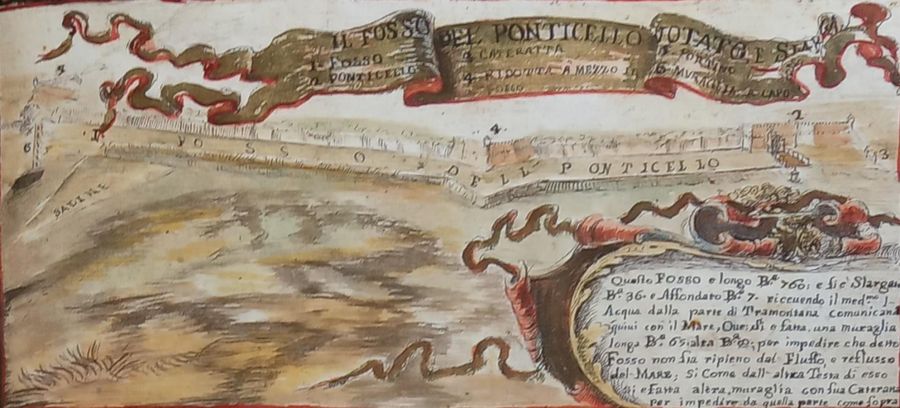 IL FOSSO DEL PONTICELLO VOTATO, E SLARGA
1. FOSSO
2. PONTICELLO
3. CATERATTA
4. RIDOTTA A MEZZO IL
FOSSO
6. MURAGLIA A CAPO
3
6
1
4
2
3
FOSSO DELL PONTICELLO
SALINE
Questo FOSSO e longo B.ª 760: e si è Slargato
B.ª 36. e Affondato B.ª 7. riceuendo il med.mo l-
Acqua dalla parte di Tramontana comunicana
quiui con il Mare, Oue si e fatta una muraglia
longa B.ª 65: alta B.ª 9: per impedire che detto
Fosso non sia ripieno dal Flusso e reflusso
del MARE; Si Come dall'altra Testa di esso
si e fatta altra muraglia con sua Caterat
Per impedire da quella parte come sopra